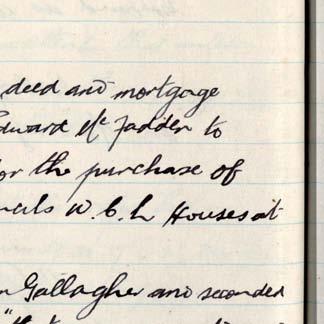 deed and mortgage
Edward Mc Fadden to
for the purchase of
Houses at
Gallagher and seconded